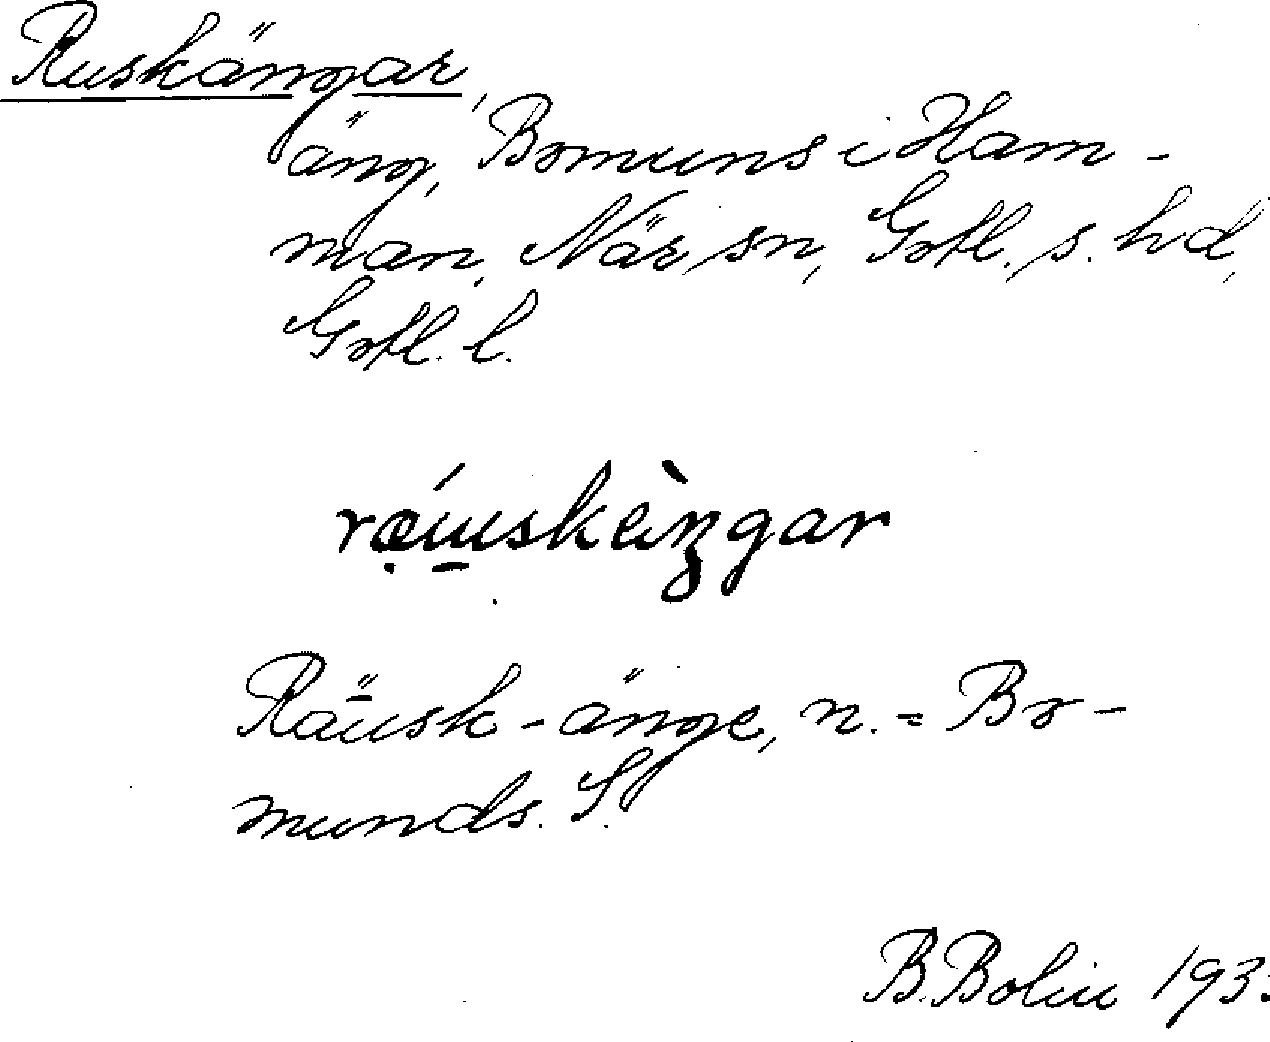 Ruskängar,
äng, Bomuns i Ham-
man, När sn, Gotl. s. hd,
Gotl. l.
rǽ̣u̱skèŋgar
Räu̱sk-änge, n. = Bo-
munds. S.
B. Bolin 193